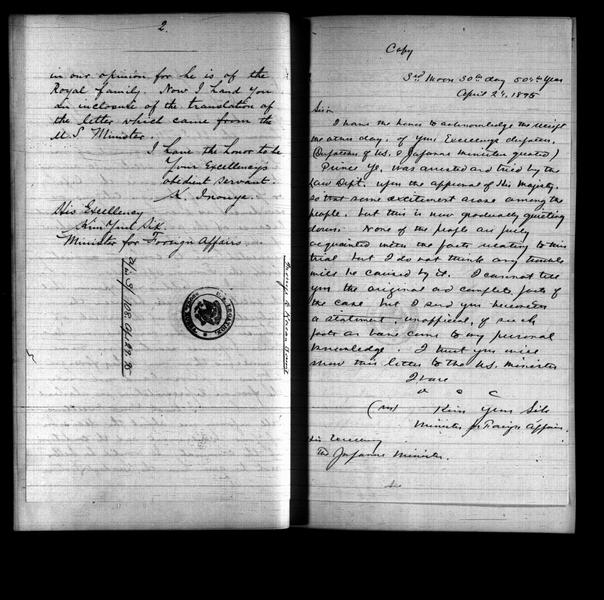 2.
in our opinion for he is of the
Royal family. Now I hand you
in inclosure of the translation of
the letter which came from the
U S Minister.
I have the honor to be
Your Excellency's
obedient servant.
K. Inouye.
His Excellency
Kim Yun Sik.
Minister for Foreign Affairs
Copy
3rd Moon 30th day 503rd Year
April 24, 1895
Sir:
I have the honor to acknowledge the receipt
the other day, of your Excellency's despatch,
(Despatches of U.S. & Japanese Minister quoted)
Prince Ye, was arrested and tried by the
Law Dept. upon the approval of His Majesty,
so that some excitement arose among the
people, but this is now gradually quieting
down. None of the people are fully
acquainted with the facts relating to this
trial but I do not think any trouble
will be caused by it. I cannot tell
you the original and complete facts of
the case but I send you herewith
a statement, unofficial, of such
facts as have come to my personal
knowledge. I trust you will
show this letter to the U.S. Minister
I have
Kim Yun Sik
Minister for Foreign Affairs.
His Excellency
The Japanese Minister.